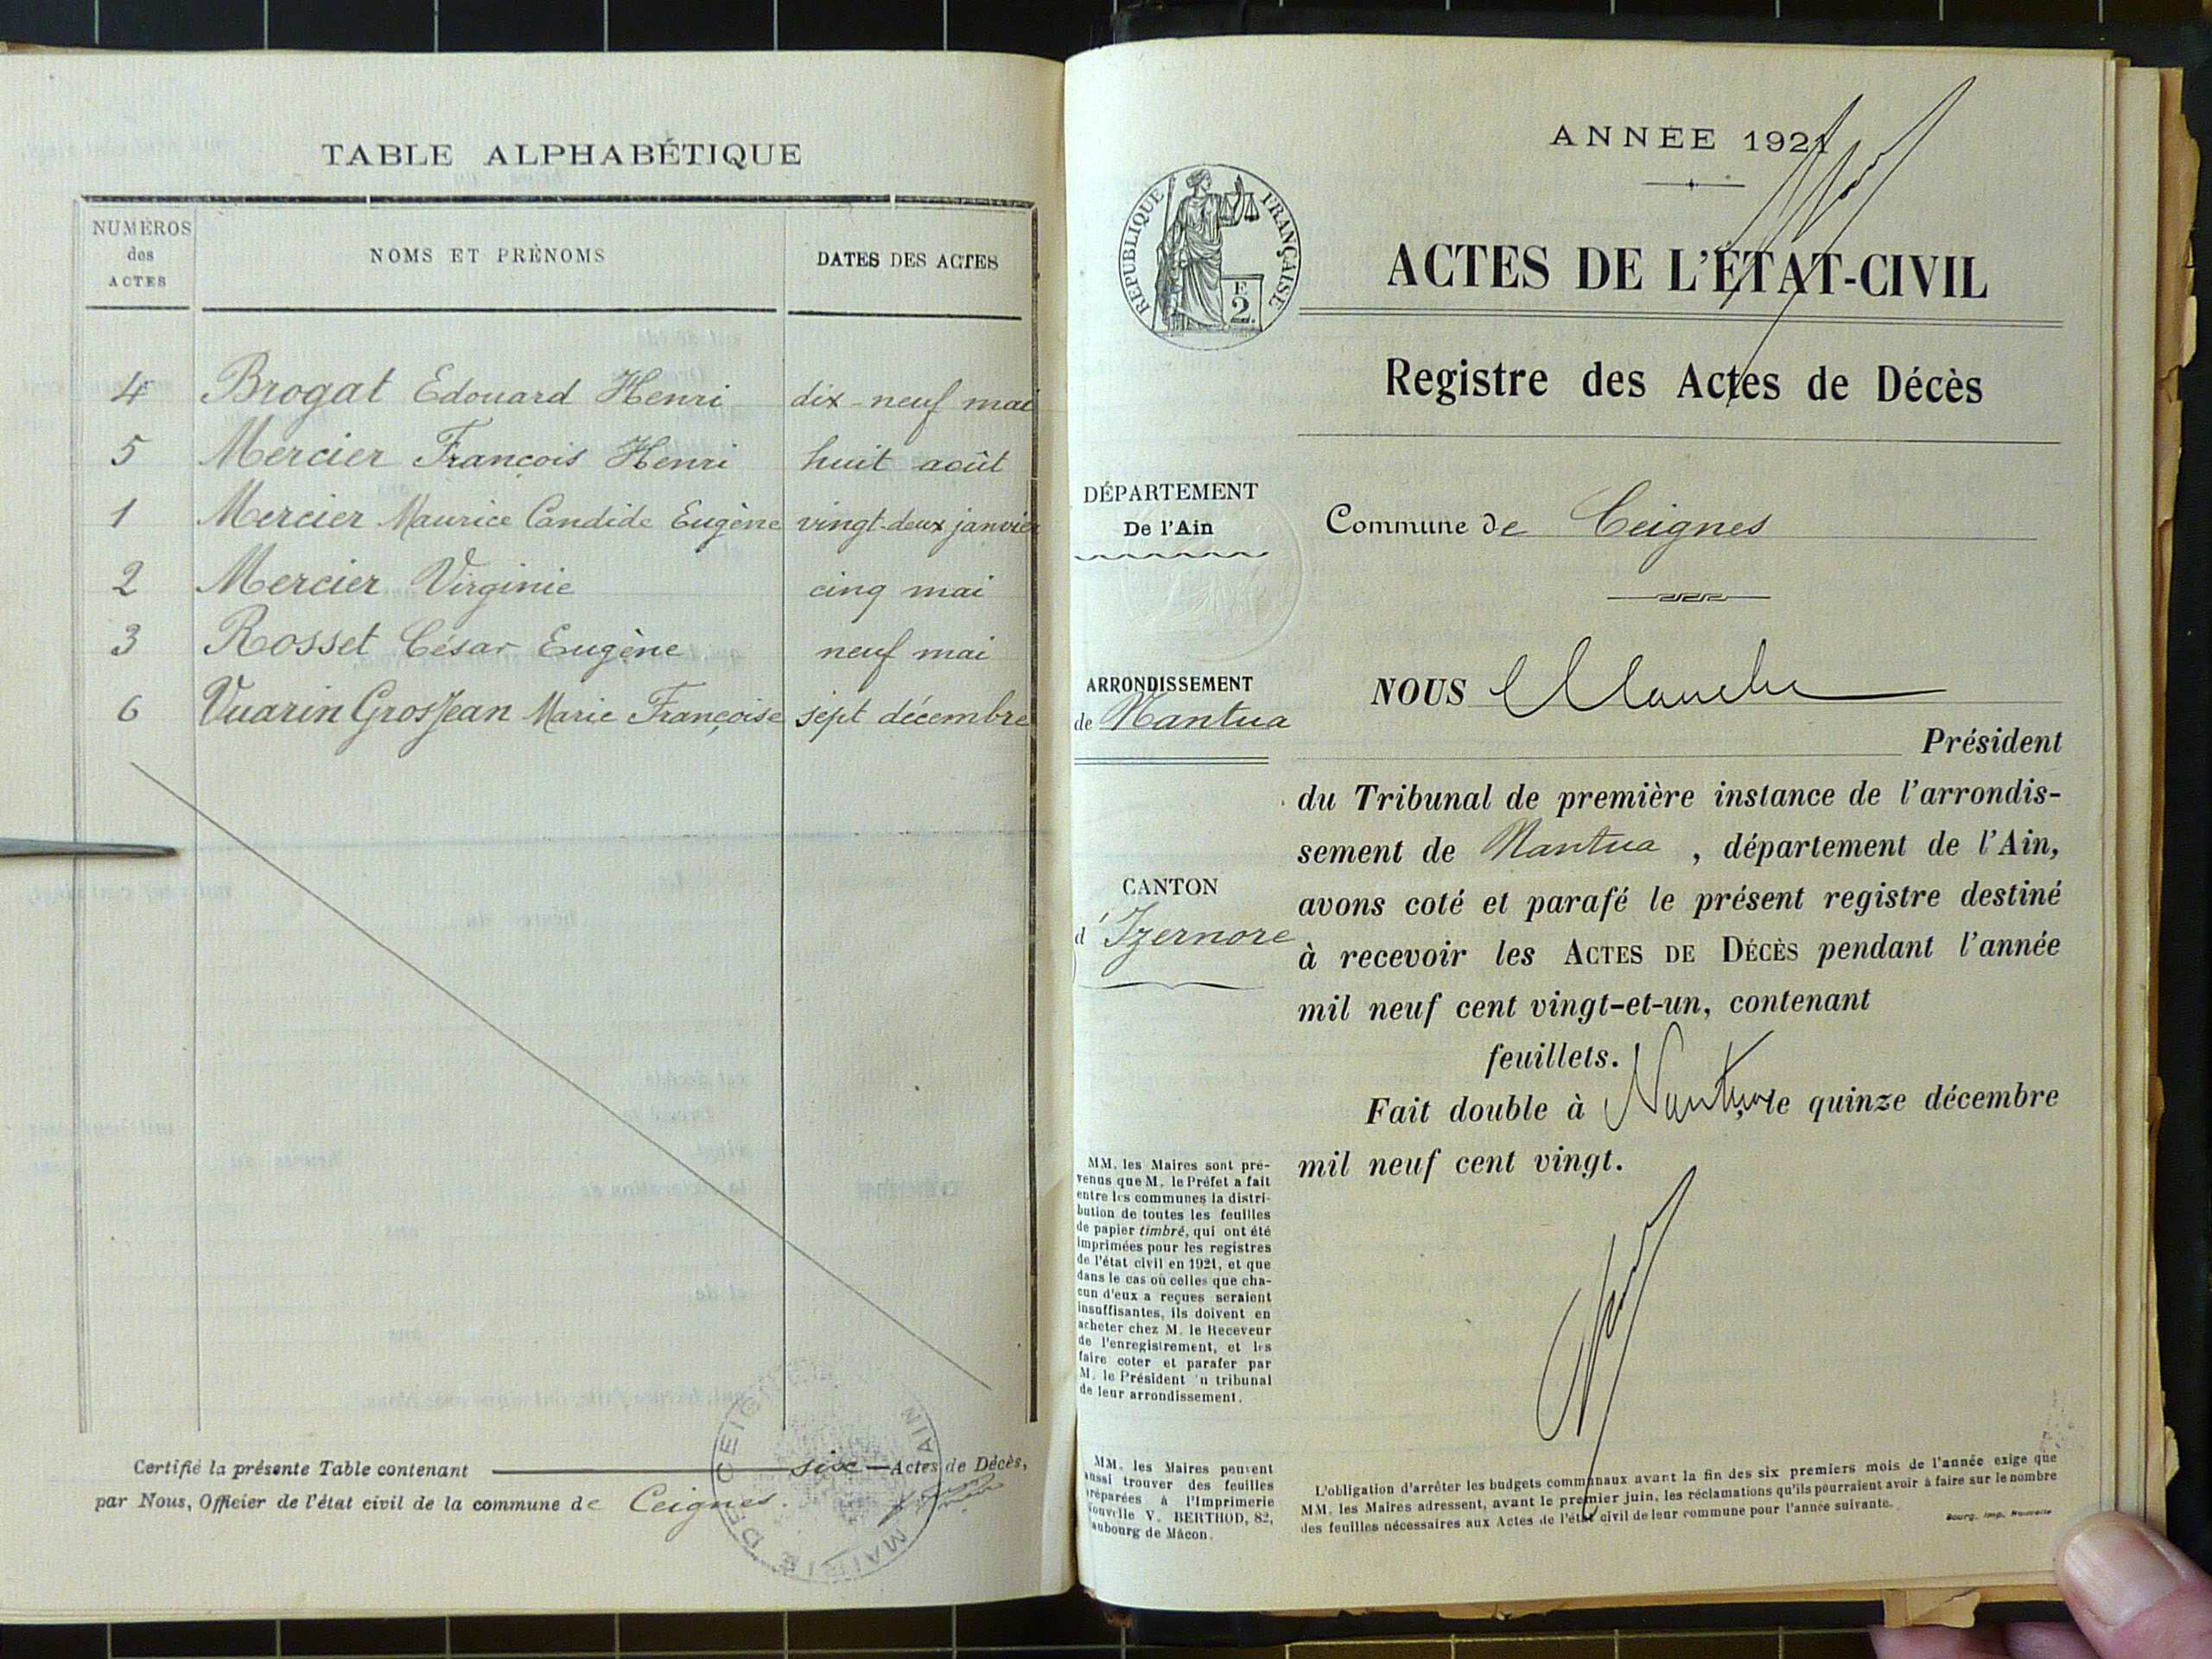 TABLE ALPHABÉTIQUE
NUMÉROS des ACTES
NOMS ET PRÉNOMS
DATES DES ACTES
4 Brogat Edouard Henri dix-neuf mai
5 Mercier François Henri huit août
1 Mercier Maurice Candide Eugène vingt-deux janvier
2 Mercier Virginie cinq mai
3 Rosset César Eugène neuf mai
6 Vuarin Grosjean Marie Françoise sept décembre
Certifié la présente Table contenant six Actes de Décès,
par Nous, Officier de l'état civil de la commune de Ceignes.
MAIRIE DE CEIGNES AIN
ANNÉE 1921
RÉPUBLIQUE FRANÇAISE
E
2.
ACTES DE L'ÉTAT-CIVIL
Registre des Actes de Décès
DÉPARTEMENT
De l'Ain
Commune de Ceignes
ARRONDISSEMENT
de Nantua
NOUS
Président
du Tribunal de première instance de l'arrondis-
sement de Nantua, département de l'Ain,
avons coté et parafé le présent registre destiné
à recevoir les ACTES DE DÉCÈS pendant l'année
mil neuf cent vingt-et-un, contenant
feuillets.
Fait double à Nantua, le quinze décembre
mil neuf cent vingt.
CANTON
d'Izernore
MM. les Maires sont pré-
venus que M. le Préfet a fait
entre les communes la distri-
bution de toutes les feuilles
de papier timbré, qui ont été
imprimées pour les registres
de l'état civil en 1921, et que
dans le cas où celles que cha-
cun d'eux a reçues seraient
insuffisantes, ils doivent en
acheter chez M. le Receveur
de l'enregistrement, et les
faire coter et parafer par
M. le Président 'u tribunal
de leur arrondissement.
MM. les Maires peuvent
aussi trouver des feuilles
préparées à l'Imprimerie
Nouvelle V. BERTHOD, 82,
faubourg de Mâcon.
L'obligation d'arrêter les budgets communaux avant la fin des six premiers mois de l'année exige que
MM. les Maires adressent, avant le premier juin, les réclamations qu'ils pourraient avoir à faire sur le nombre
des feuilles nécessaires aux Actes de l'état civil de leur commune pour l'année suivante.
Bourg. Imp. Nouvelle